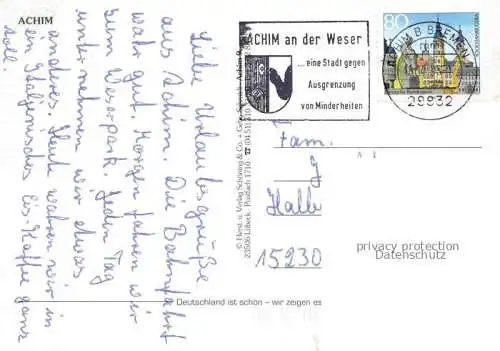 ACHIM
Liebe Urlaubsgrüße
aus Achim. Die Bahnfahrt
war gut. Morgen fahren wir
zum Weserpark. Jeden Tag
unternehmen wir etwas
anderes. Heute waren wir in
ein Italienisches Eis-Kaffee ganz
toll.
ACHIM an der Weser
...eine Stadt gegen
Ausgrenzung
von Minderheiten
80
ACHIM B BREMEN
28832
Fam.
J
Halle
15230
privacy protection
Datenschutz
© Herst. u. Verlag Schöning & Co. +
23506 Lübeck · Postfach 1710
Deutschland ist schön – wir zeigen es